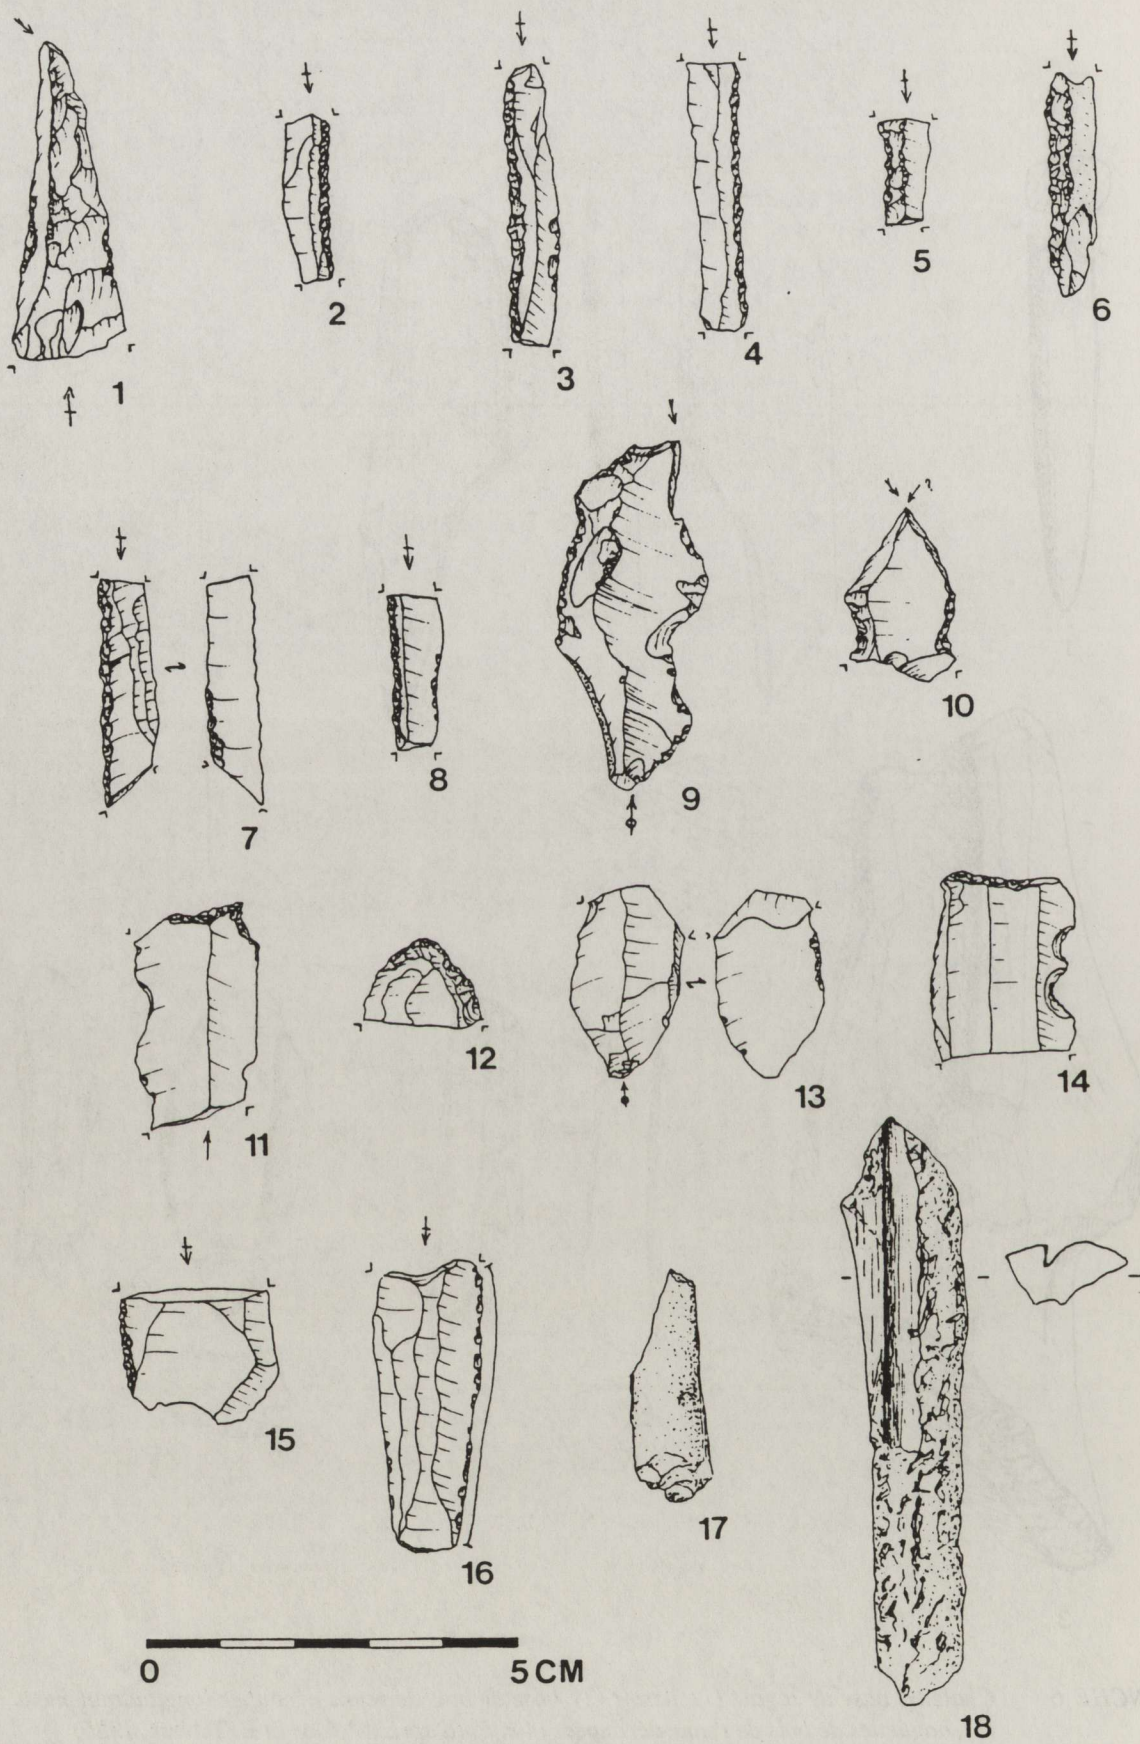 1
2
3
4
5
6
7
8
9
10
11
12
13
14
15
16
17
18
0 5 CM